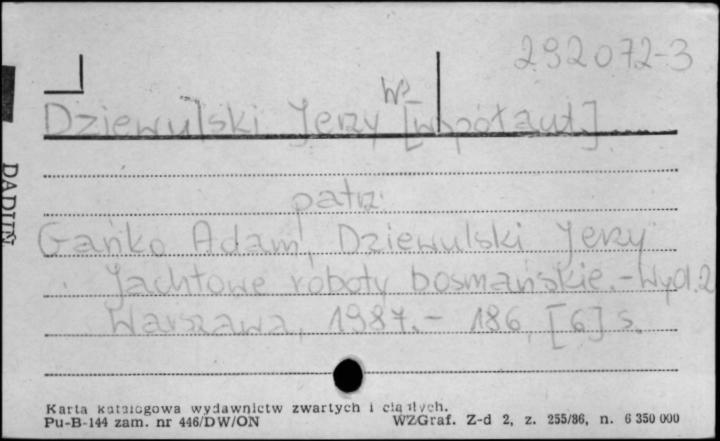 292072-3
W.
Dziewulski Jerzy [współaut.]
patrz:
Gańko Adam, Dziewulski Jerzy
Jachtowe roboty bosmańskie. - Wyd. 2
Warszawa, 1987. - 186, [6] s.
Karta katalogowa wydawnictw zwartych i ciągłych.
Pu-B-144 zam. nr 446/DW/ON WZGraf. Z-d 2, z. 255/86, n. 6 350 000